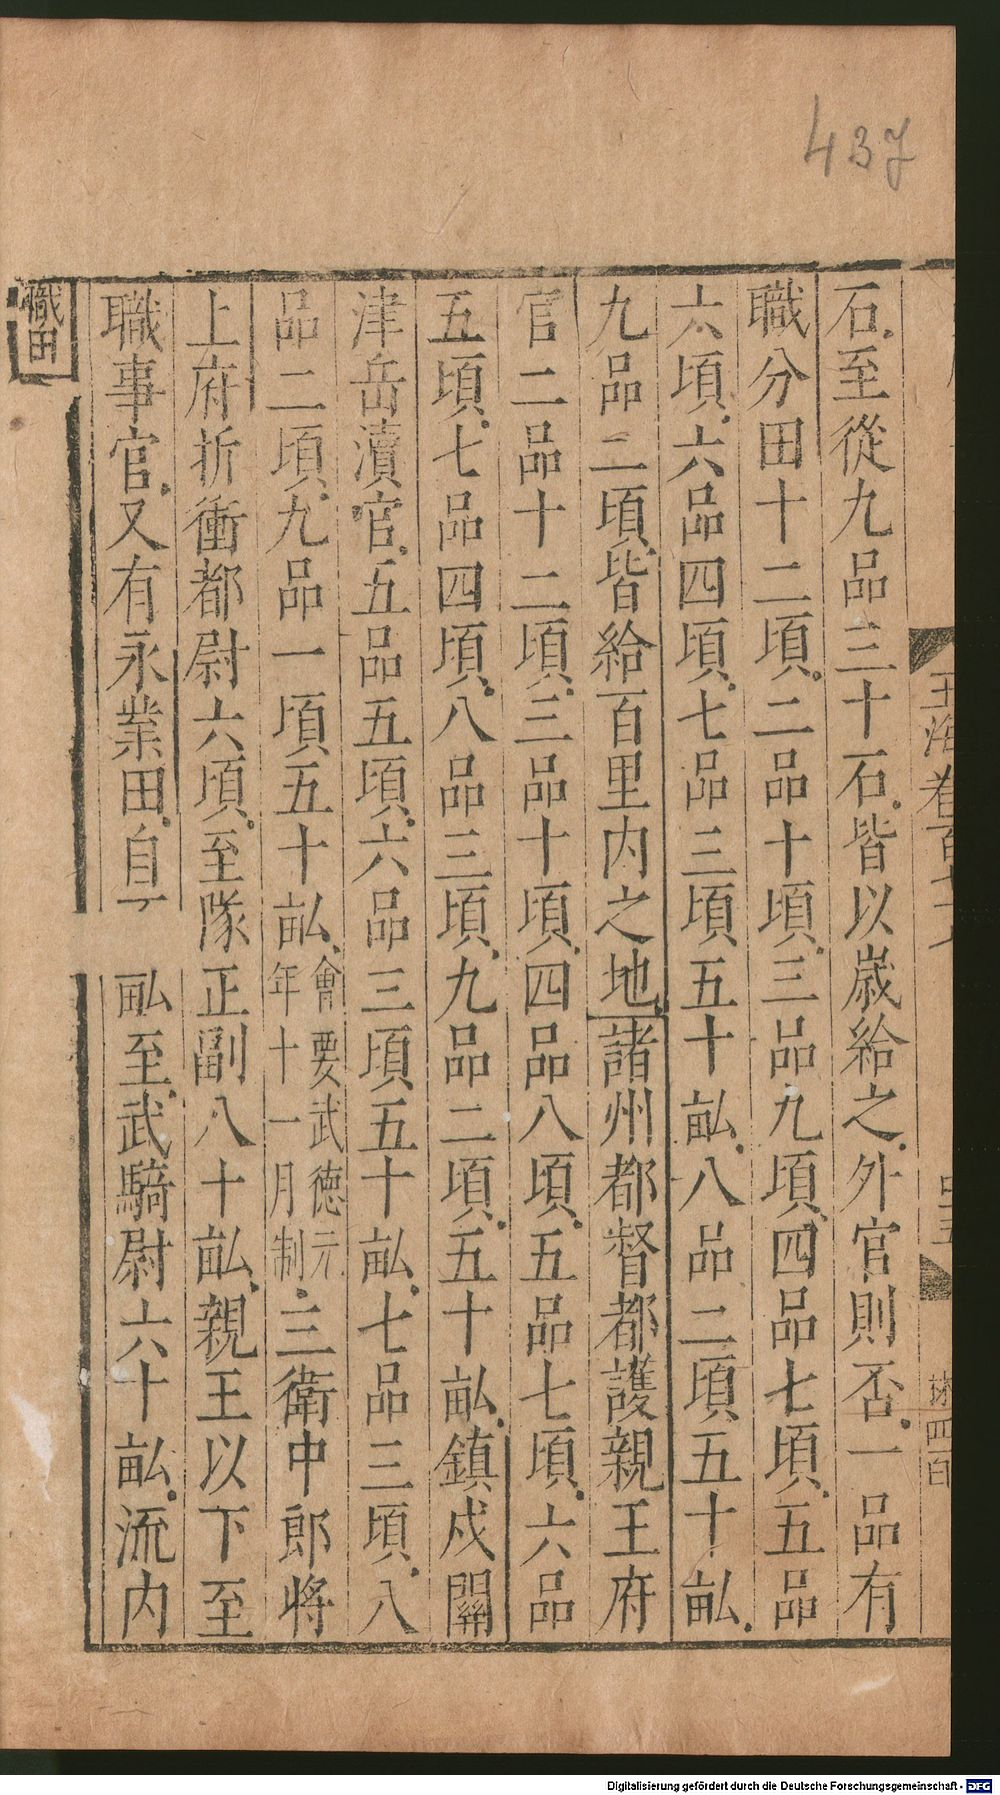 437
石至從九品三十石皆以歲給之外官則否一品有
職分田十二頃二品十頃三品九頃四品七頃五品
六頃六品四頃七品三頃五十畝八品二頃五十畝
九品二頃皆給百里內之地諸州都督都護親王府
官二品十二頃三品十頃四品八頃五品七頃六品
五頃七品四頃八品三頃九品二頃五十畝鎮戍關
津岳瀆官五品五頃六品三頃五十畝七品三頃八
品二頃九品一頃五十畝會要武德元年十一月制三衛中郎將
上府折衝都尉六頃至隊正副八十畝親王以下至
職事官又有永業田自 畝至武騎尉六十畝流內
職田
Digitalisierung gefördert durch die Deutsche Forschungsgemeinschaft - DFG